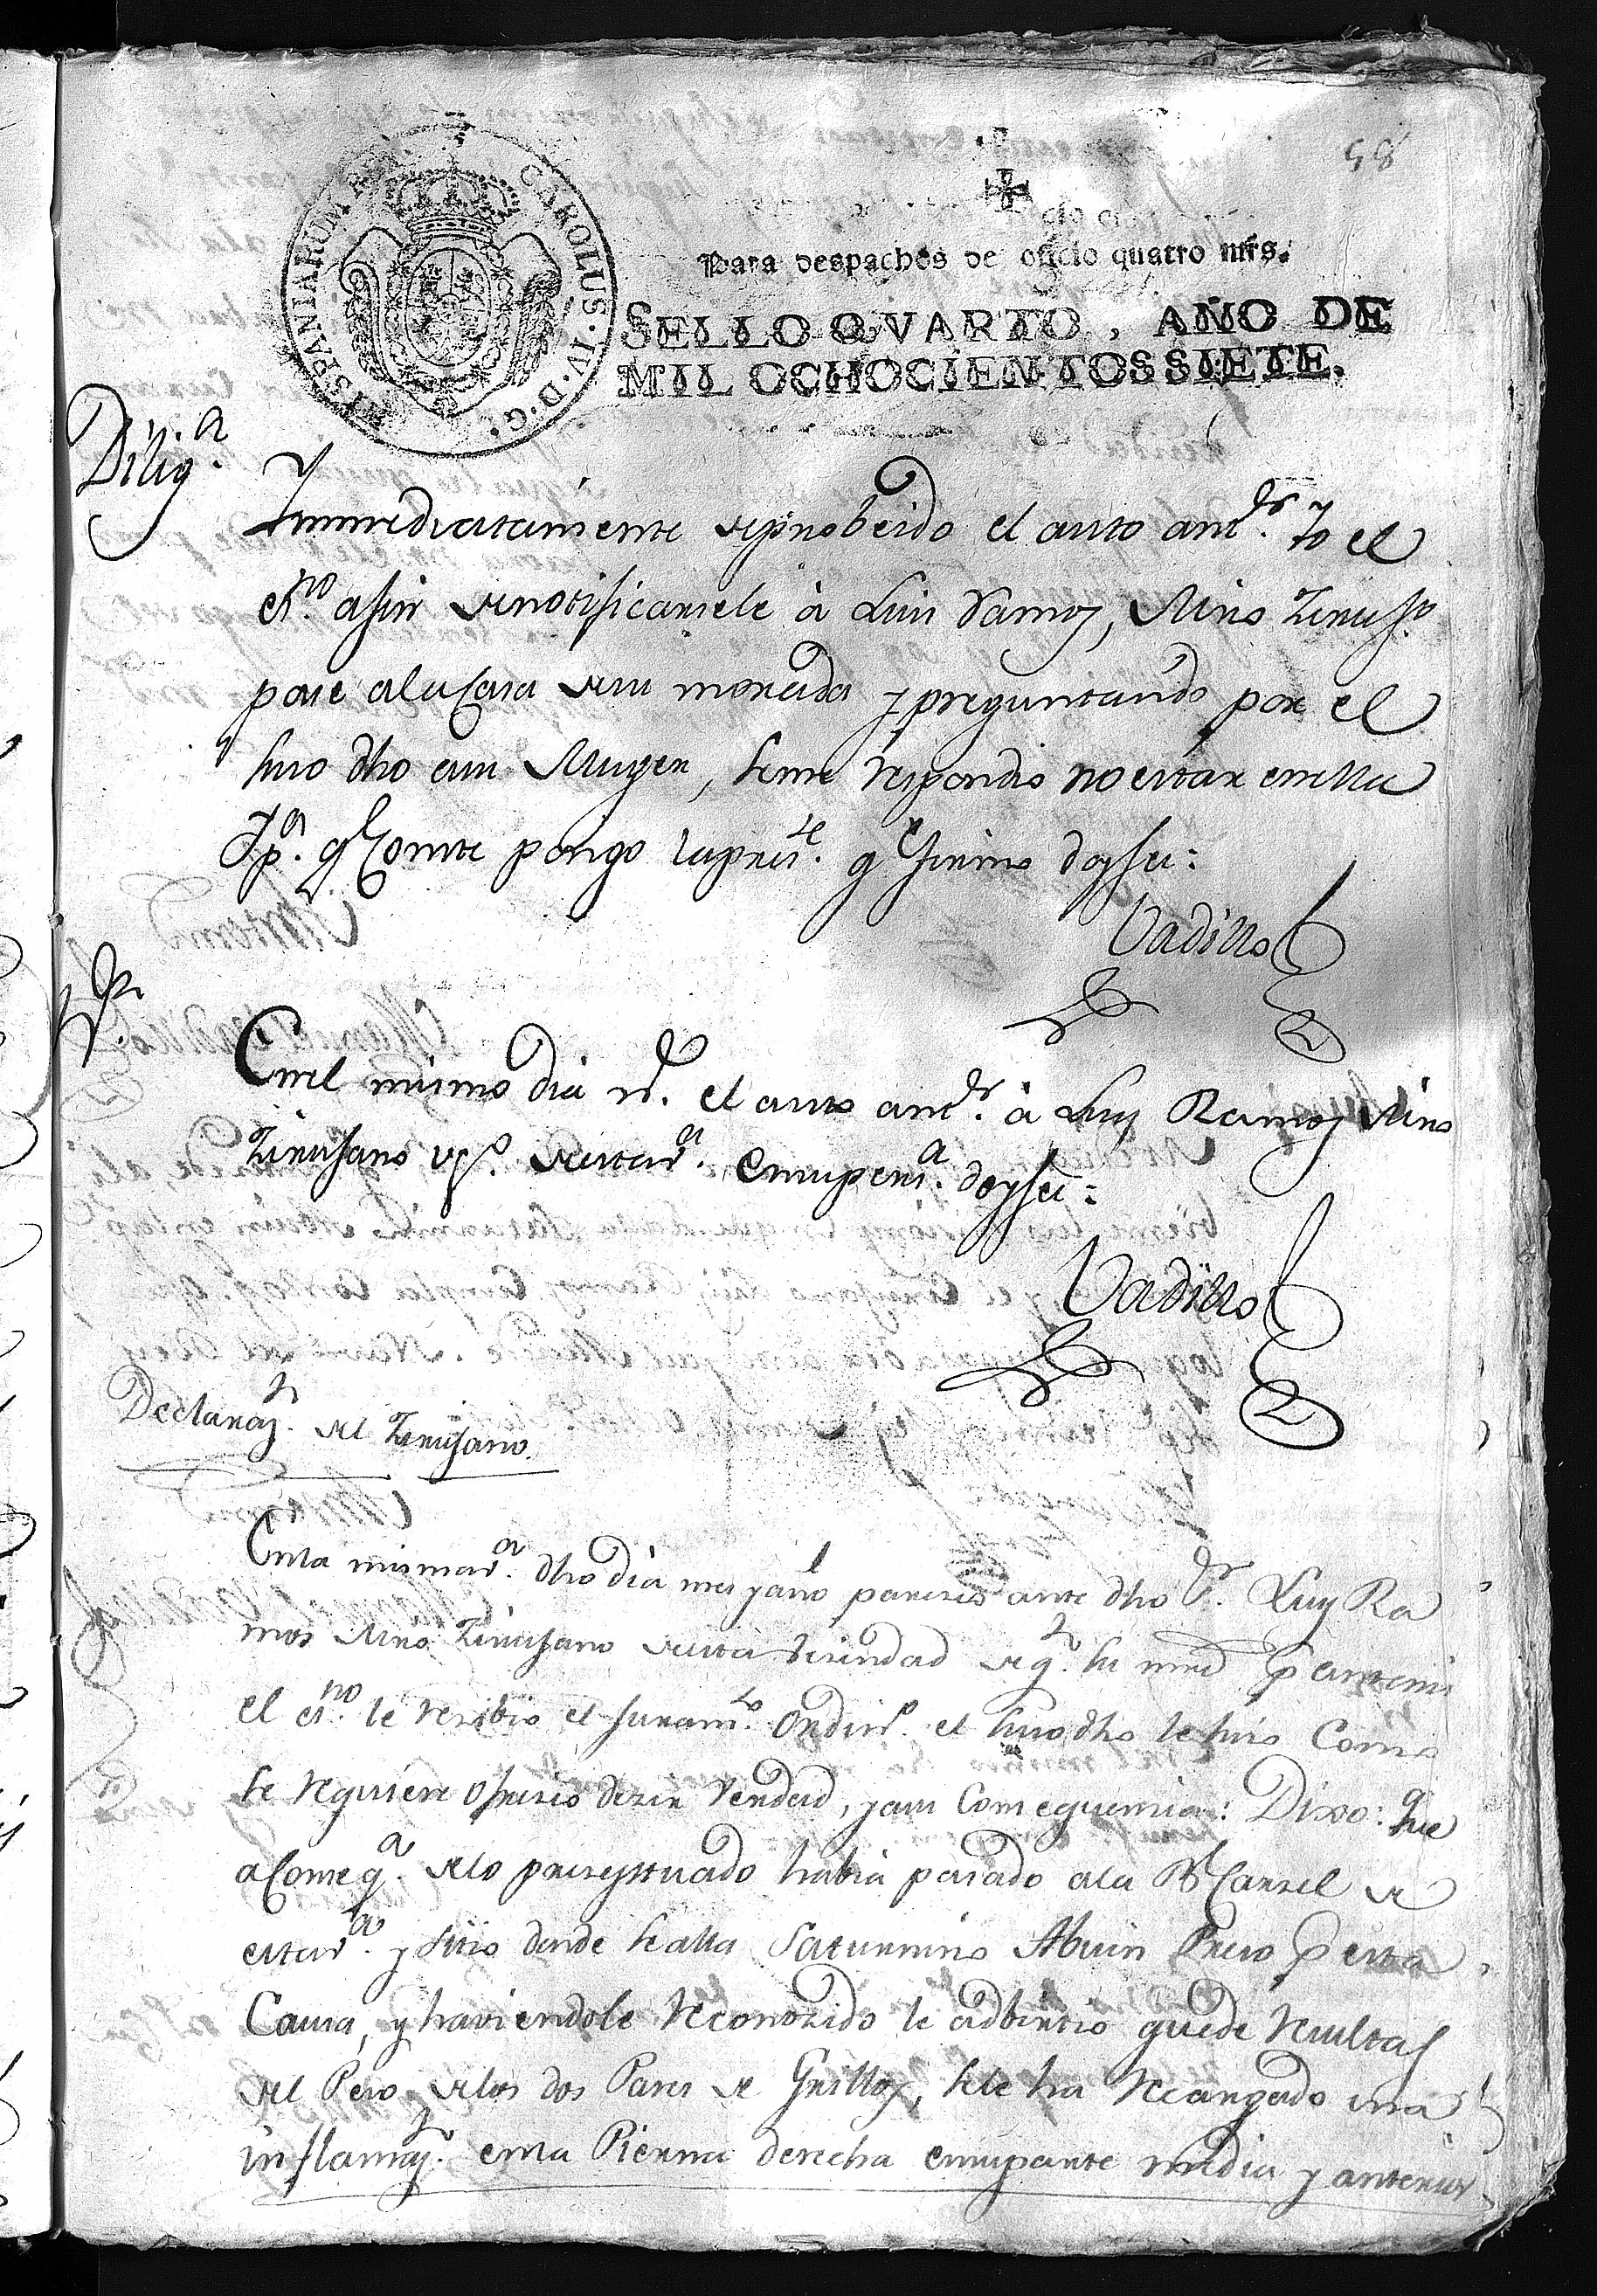 58
HISPANIARUM REX CAROLUS·IV·D·G·
Para despachos de oficio quatro mrs.
SELLO QVARTO, AÑO DE
MIL OCHOCIENTOS SIETE.
Dilig.a
Immediatamente de probeido el auto antr. Yo el
esno. a fin de notificarsele à Luis Ramos, Mro Zirujo.
pase a la Casa de su morada y preguntando por el
suso dho a su Muger, se me respondio no estar en ella
Yp.a q.e Conste pongo la preste. q.e firmo doy fee:
Vadillo
Nr.
En el mismo dia nr. el auto antr. à Luis Ramos Mro
Zirujano vo. de esta va. en su pera. doy fee:
Vadillo
Declarazn. del Zirujano.
En la misma va. dho dia mes y año parezio ante dho Sr. Luis Ra
mos Mro Zirujano de esta Vezindad de qn. su md p ante mi
el esno. le rezibio el juramto. Ordino. el suso dho le hizo Como
se requiere ofrezio dezir Verdad, y a su Consequenzia: Dixo: que
a Conseqa. de lo prezeptuado habia pasado a la Rl Carzel de
esta va. y sitio donde se alla Saturnino Abuin Preso p esta
Causa, y haviendole reconozido le adbirtio que de resultas
del Peso de los dos Pares de Grillos, se le ha recargado una
inflamazn. en la Pierna derecha en su parte media y anterior